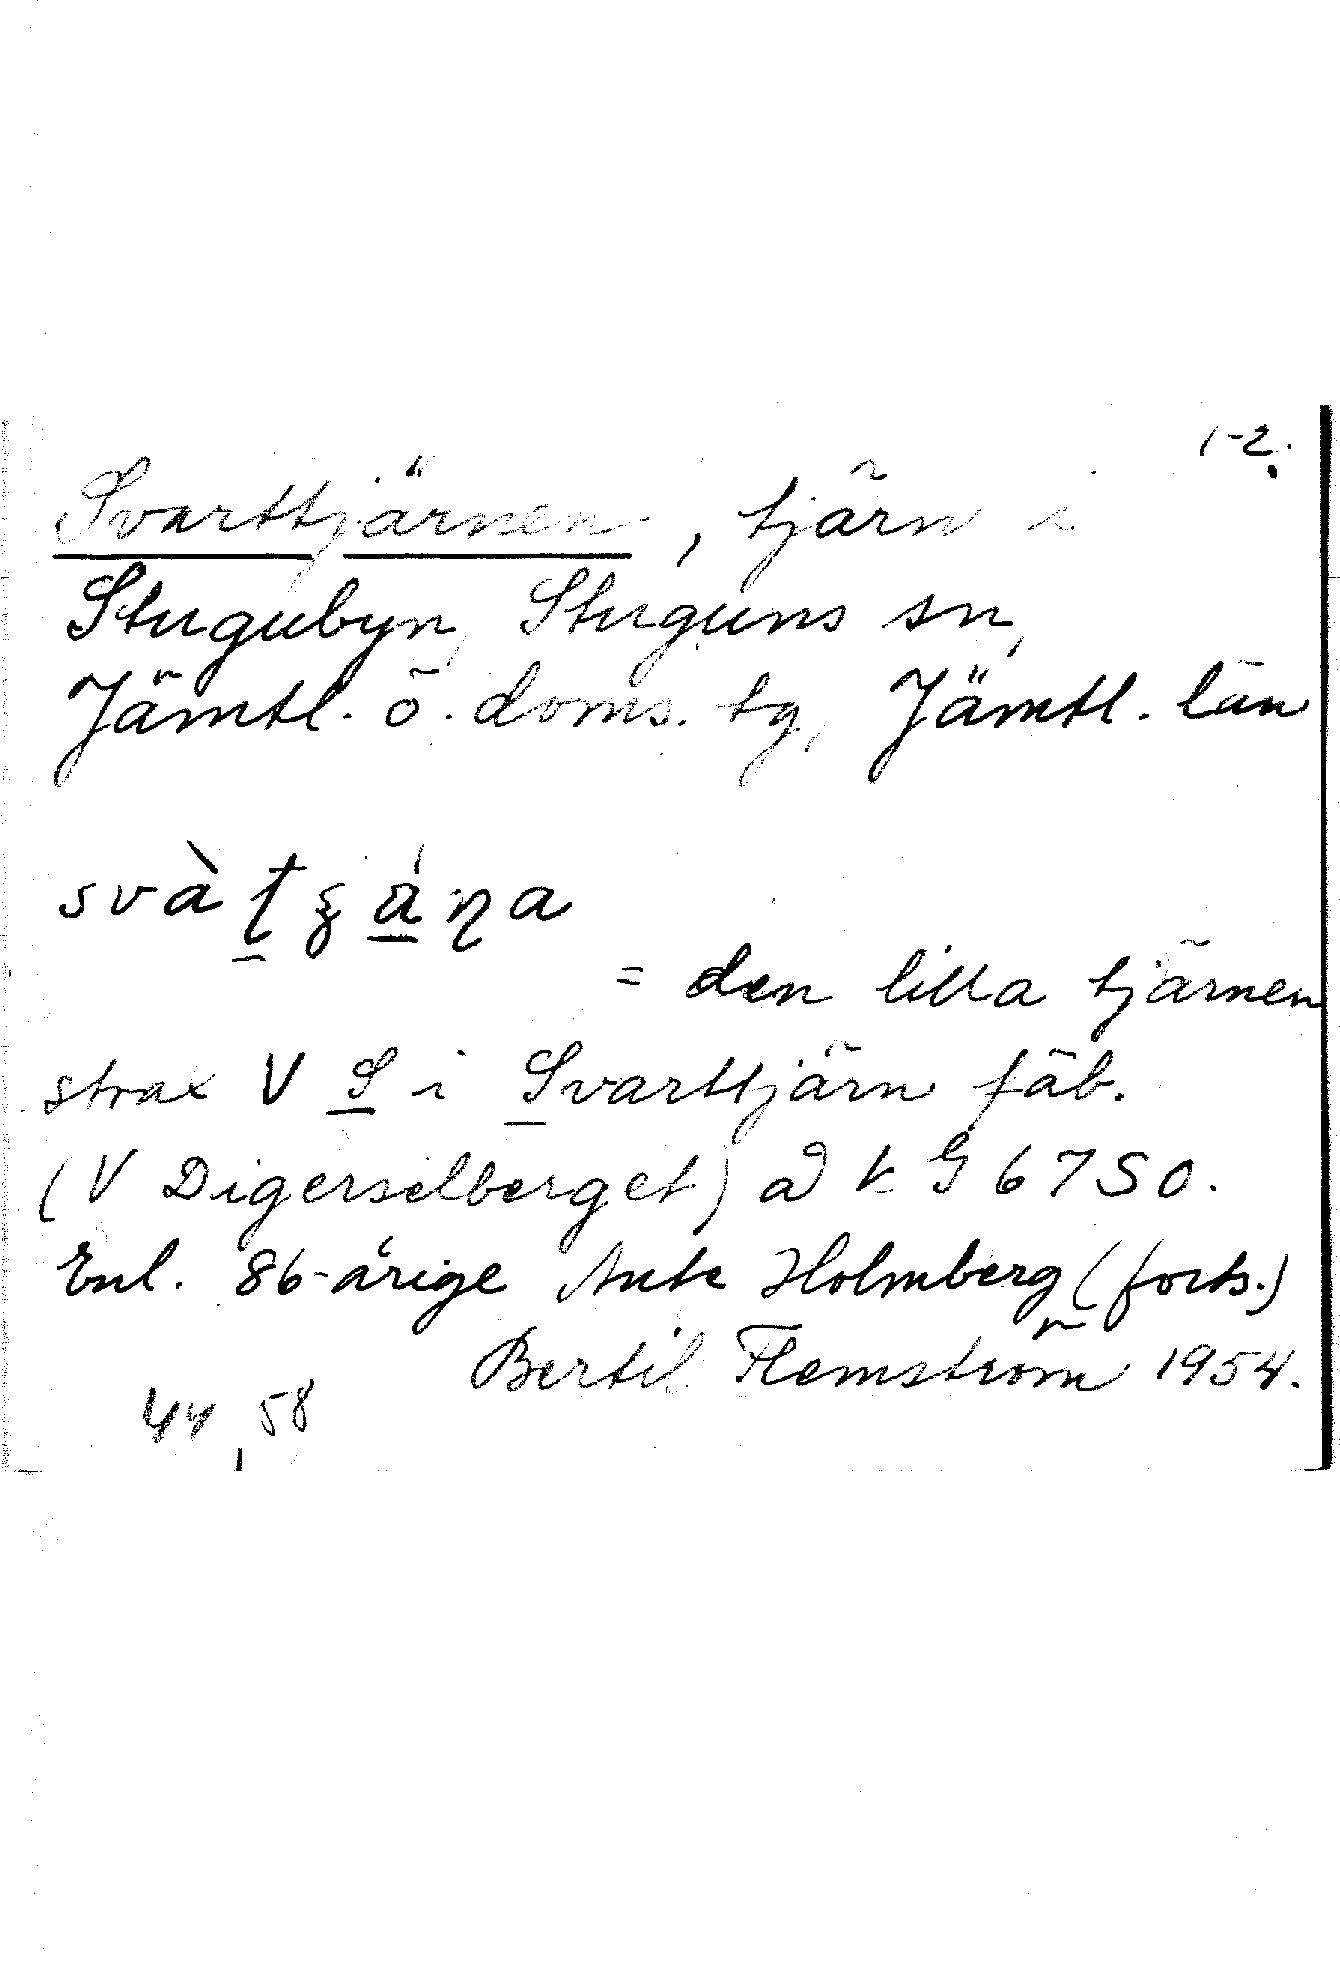 1-2.
Svarttjärnen, tjärn i
Stugubyn, Stuguns sn,
Jämtl. ö. doms. tg, Jämtl. län
= den lilla tjärnen
strax V S i Svarttjärn fäb.
(V Digerselberget) a k G 6750.
Enl. 86-årige Ante Holmberg (forts.)
Bertil Flemström 1954.
44, 58